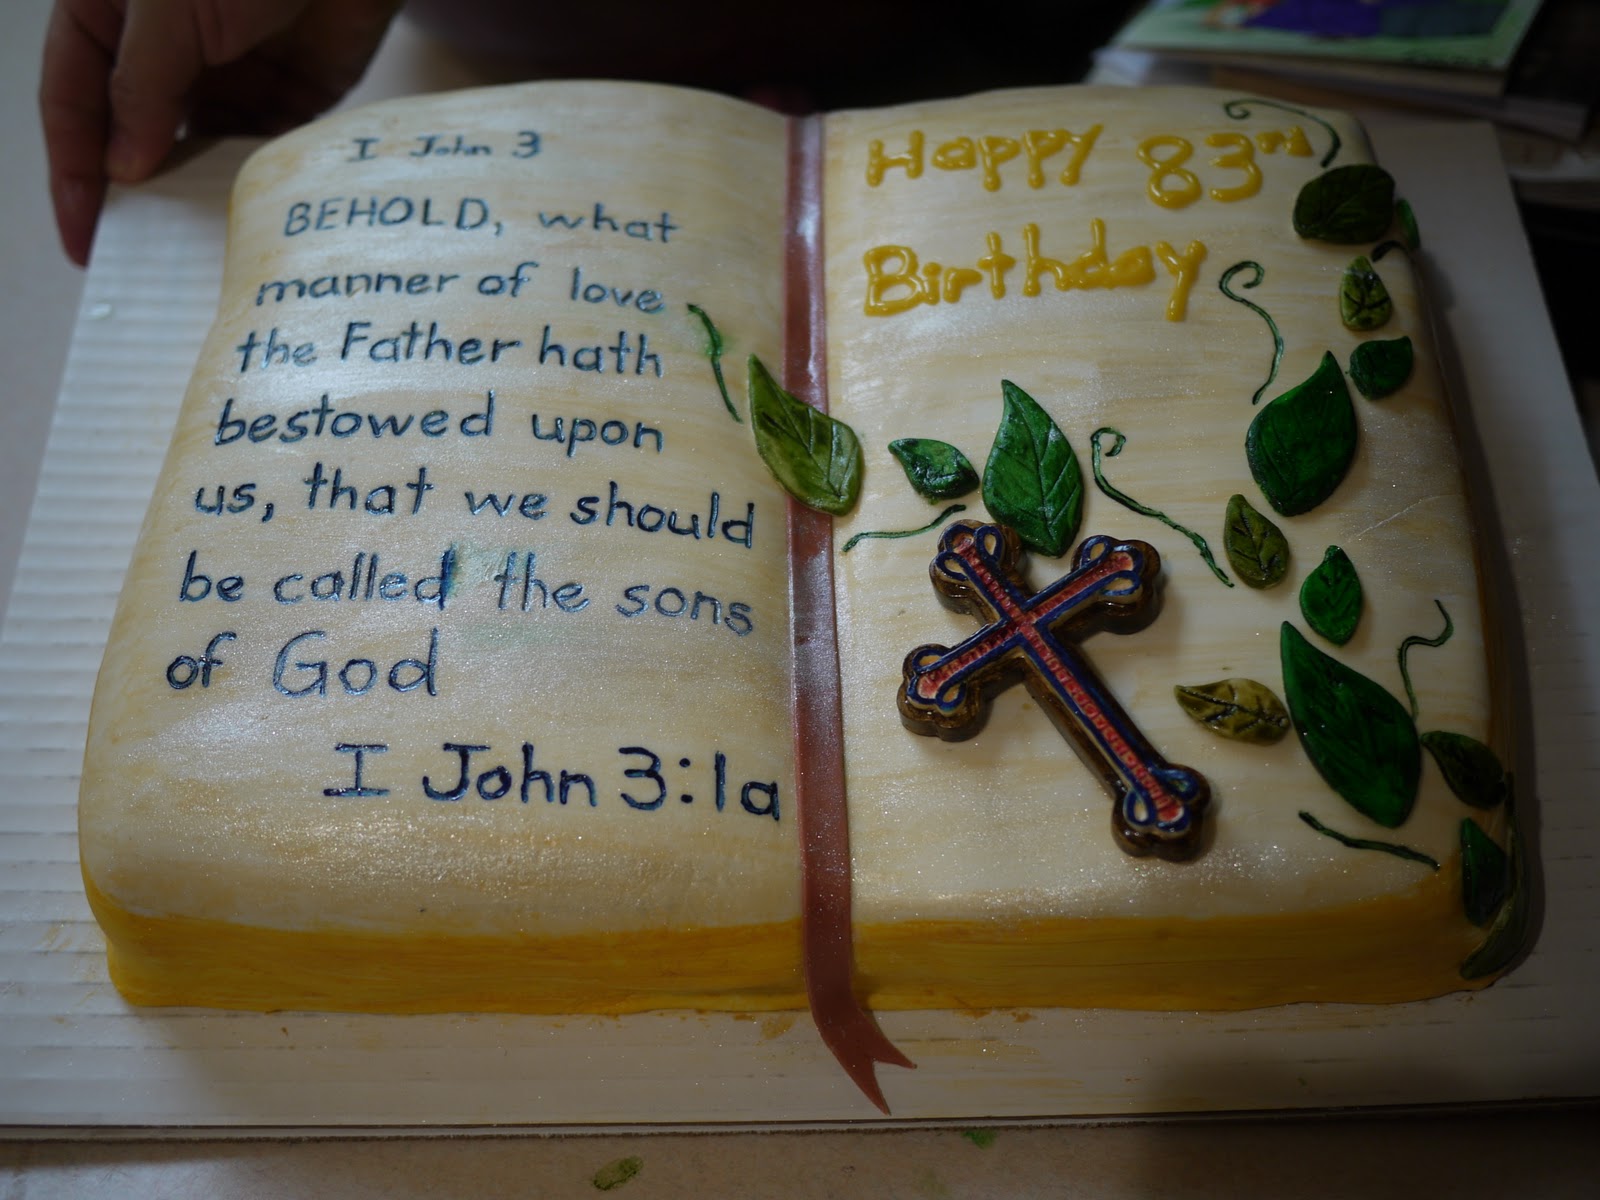 I John 3
BEHOLD, what
manner of love
the Father hath
bestowed upon
us, that we should
be called the sons
of God
I John 3:1a
Happy 83rd
Birthday